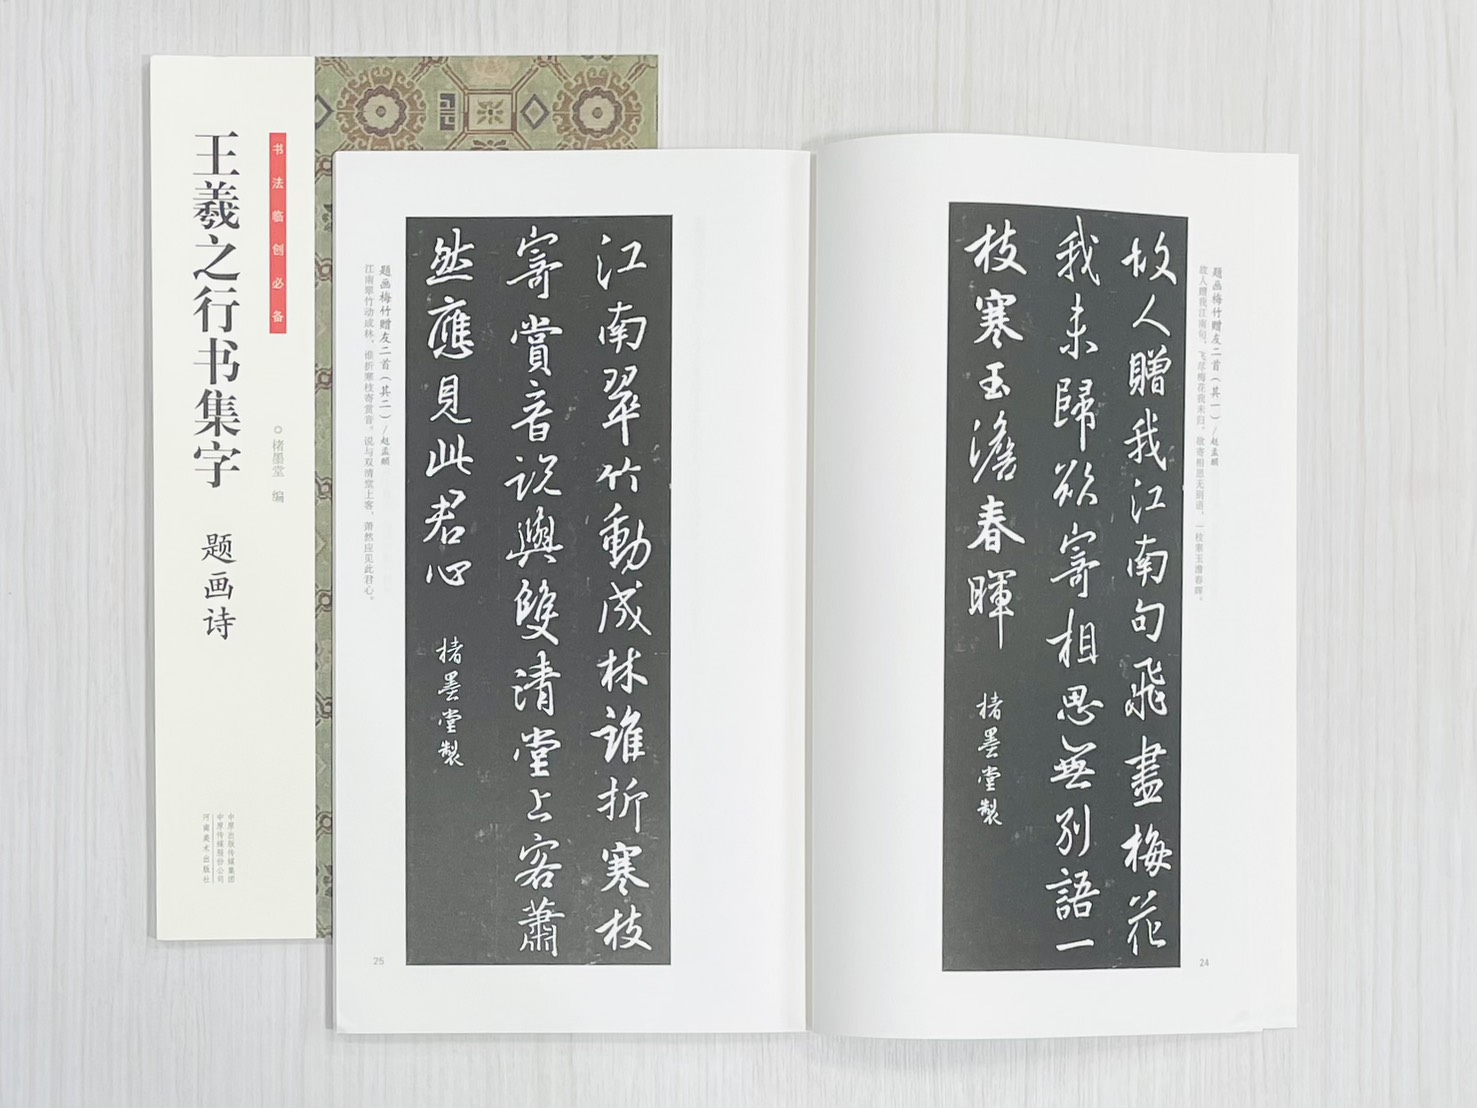 书法临创必备
王羲之行书集字 题画诗
○楮墨堂 编
中原出版传媒集团
中原传媒股份公司
河南美术出版社
题画梅竹赠友二首（其一）/赵孟頫
故人赠我江南句，飞尽梅花我未归。欲寄相思无别语，一枝寒玉澹春晖。
故人贈我江南句飛盡梅花
我未歸欲寄相思無別語一
枝寒玉澹春暉
楮墨堂製
24
题画梅竹赠友二首（其二）/赵孟頫
江南翠竹动成林，谁折寒枝寄赏音。说与双清堂上客，萧然应见此君心。
江南翠竹動成林誰折寒枝
寄賞音説與雙清堂上客蕭
然應見此君心
楮墨堂製
25